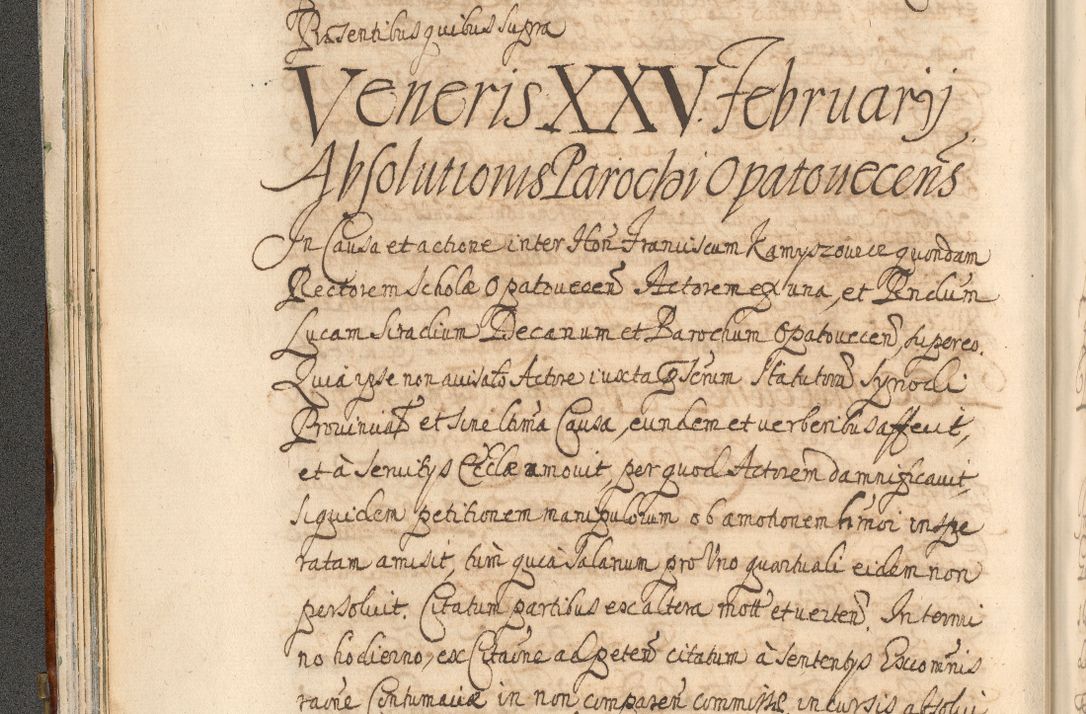 Præsentibus quibus supra
Veneris XXV. Februarij
Absolutionis Parochi Opatovecens̄
In Causa et actione inter Hon̄ Franciscum Kamyszovice quondam
Rectorem Scholæ Opatovecen̄ Actorem ex una, et Vendum̄
Lucam Siradium Decanum et Parochum Opatovecen̄, super eo.
Quia ipse non avisato Actore iuxta Statutorū Synodi
Provincial et sine ltīma Causa, eundem et verberibus affecit,
et à servitijs Ecclæ amovit, per quod Actorem damnificavit,
siquidem petitionem manipulorum ob amotionem hmōi inspe
ratam amisit, tum quia Salarium pro Uno quartuali eidem non
persolvit. Citatum partibus ex altera mott et verten̄. In termi
no hodierno, ex Citatiōne ad peten̄ citatum à sententijs Excomīnis
ratiōne Contumaciæ in non comparen̄ commissæ incursis absolvi